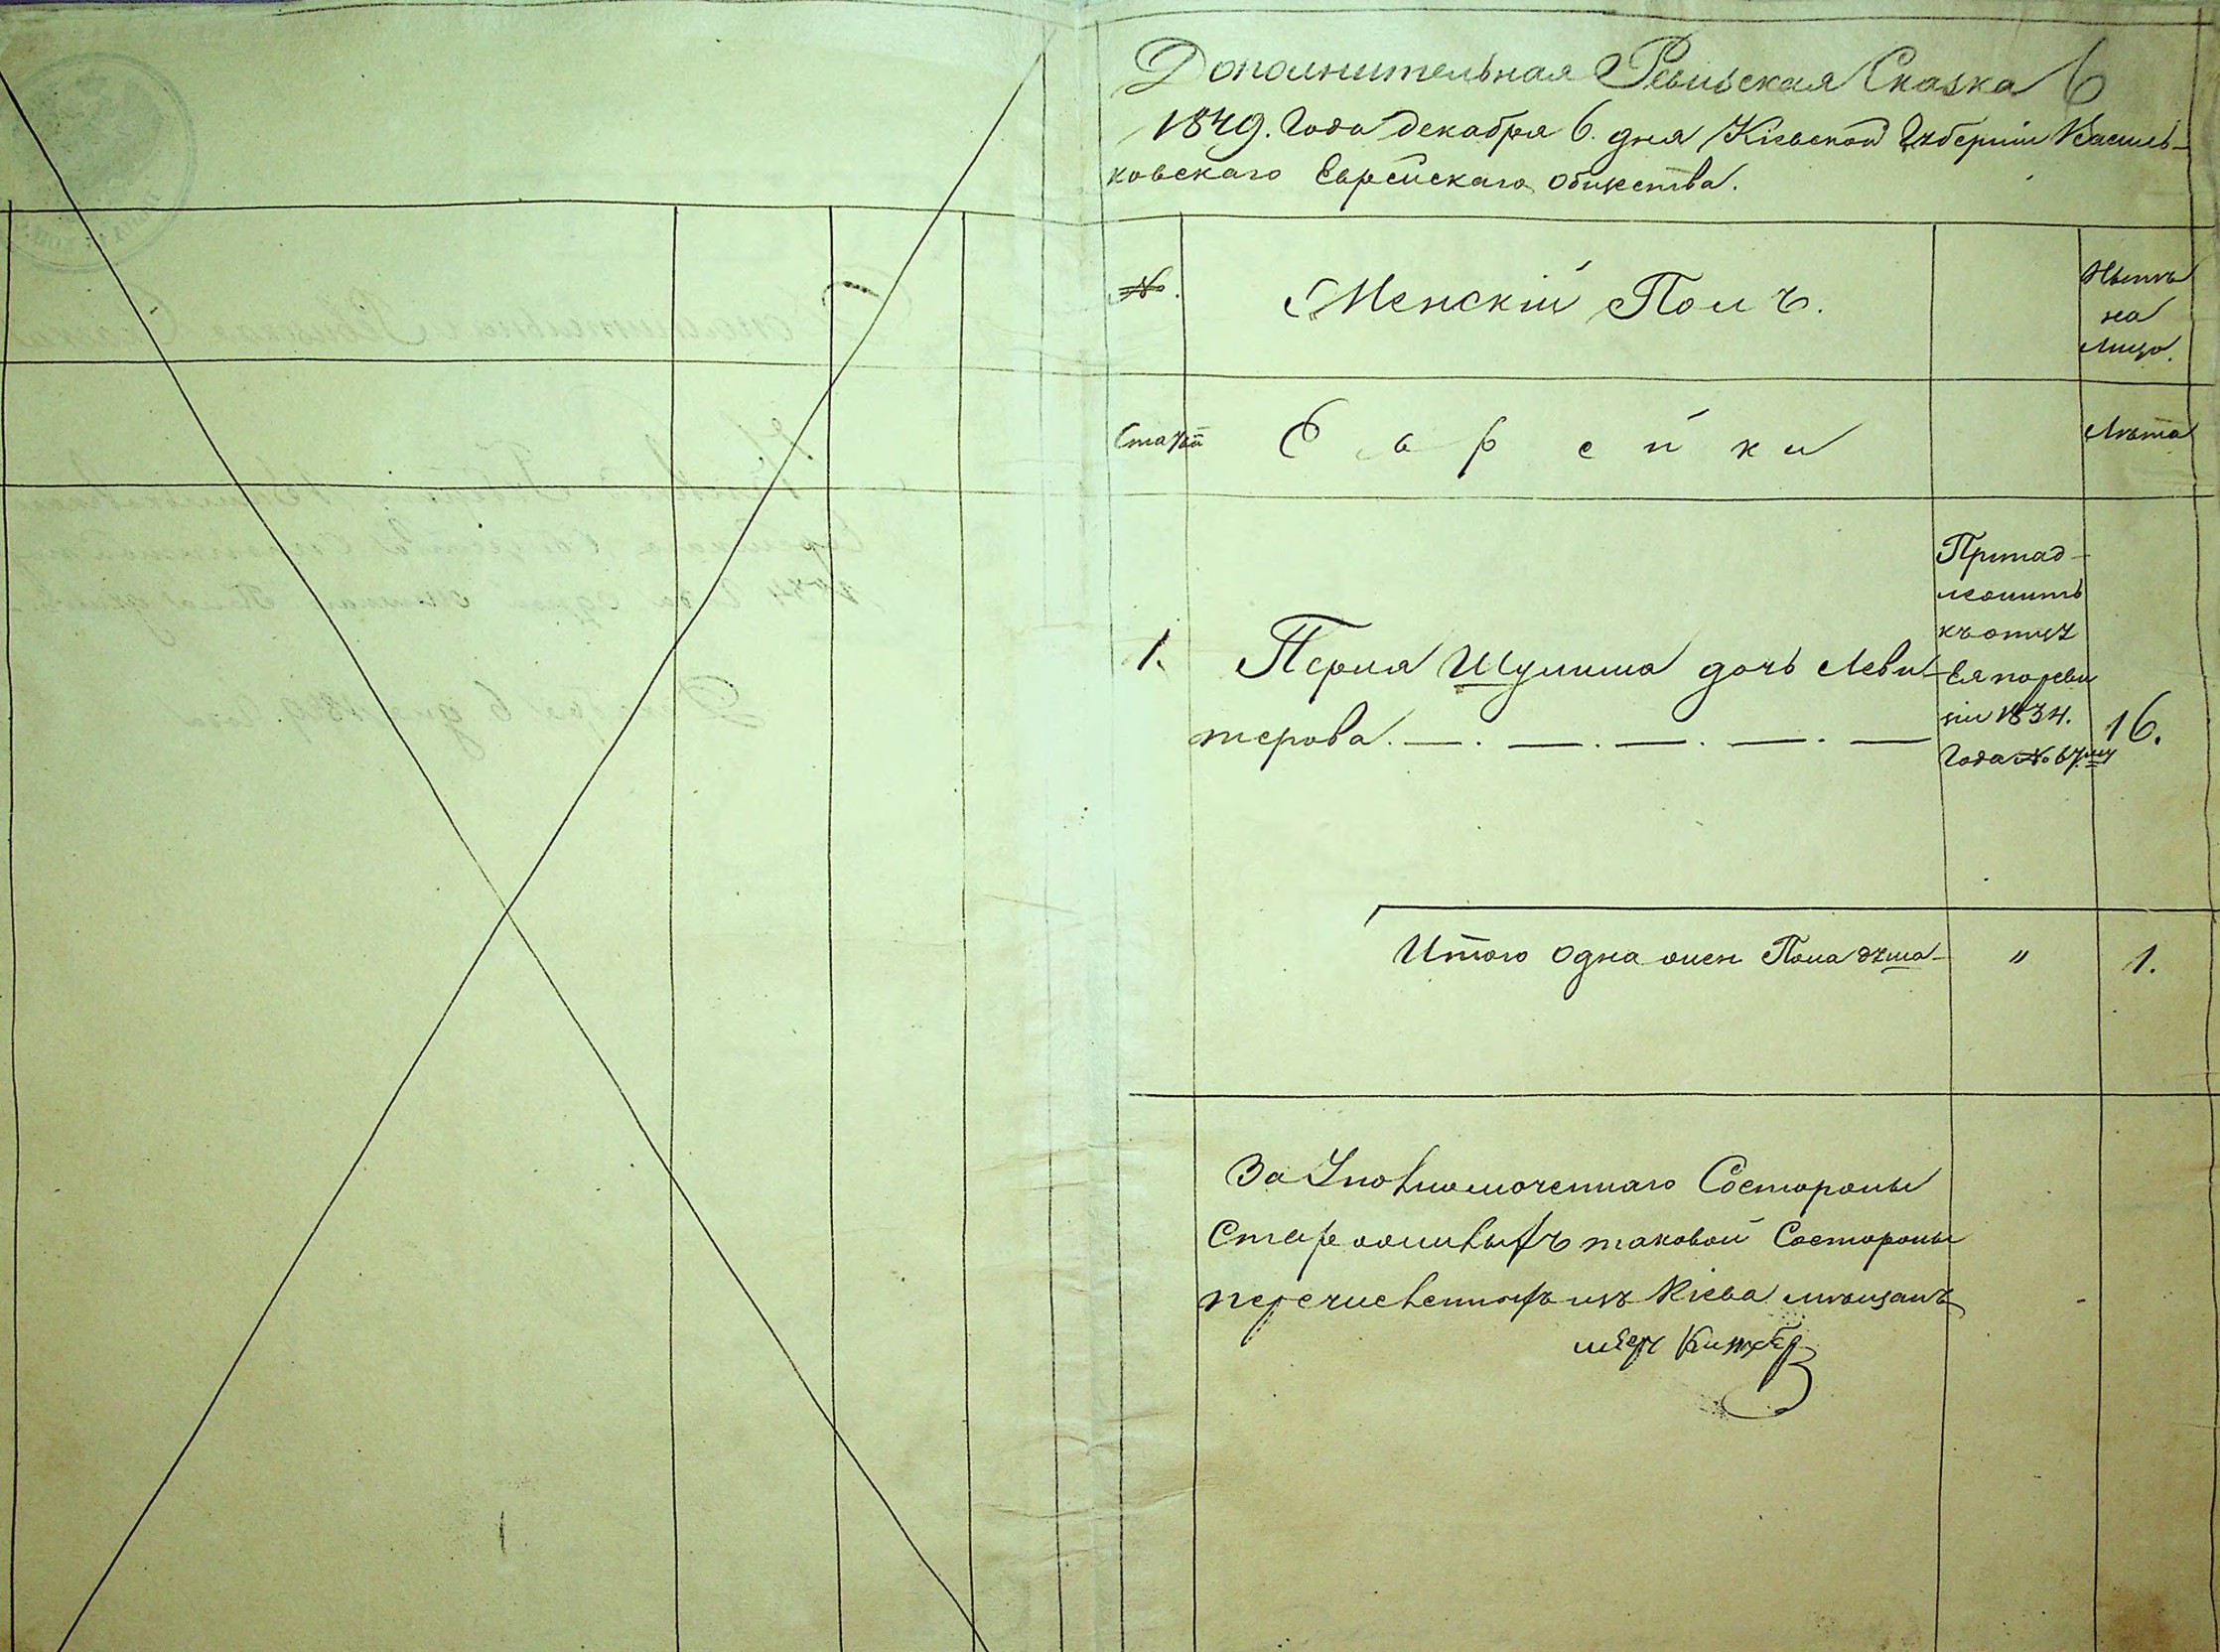 Дополнительная Ревизская Сказка 6
1849. Года декабря 6. дня Кіевской Губерніи Василь-
ковскаго Еврейскаго Общества.
№.
Женскій Полъ.
Нынѣ
на
лицо.
Статьи
Еврейки
Лѣта
1.
Перля Шулима дочь Леви-
терова.
Принад-
лежитъ
къ отцу
Ея по реви
зіи 1834.
Года № 67му
16.
Итого одна жен Пола душа
"
1.
За Уполномоченнаго Состороны
Старожилыхъ таковой Состороны
перечисленныхъ изъ Кіева мѣщанъ